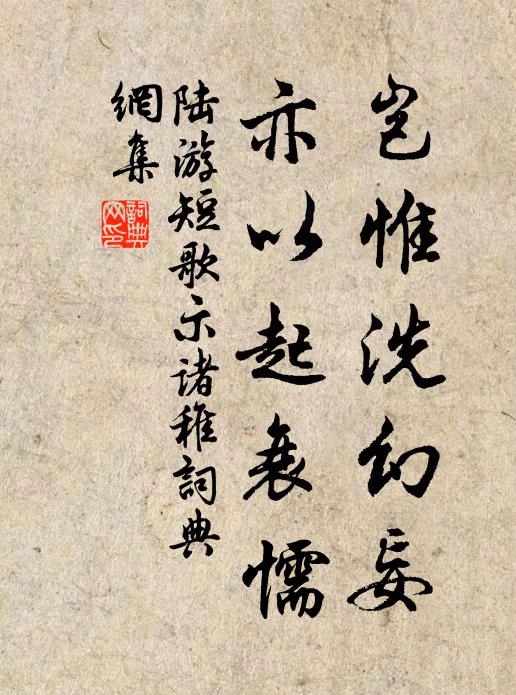 岂惟洗幻妄
亦以起衰懦
陆游短歌示诸稚詞典
網集
詞典
网印